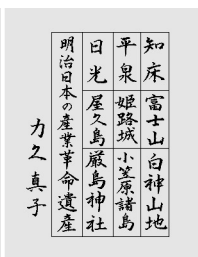 知床 富士山 白神山地
平泉 姫路城 小笠原諸島
日光 屋久島 厳島神社
明治日本の産業革命遺産
力久真子